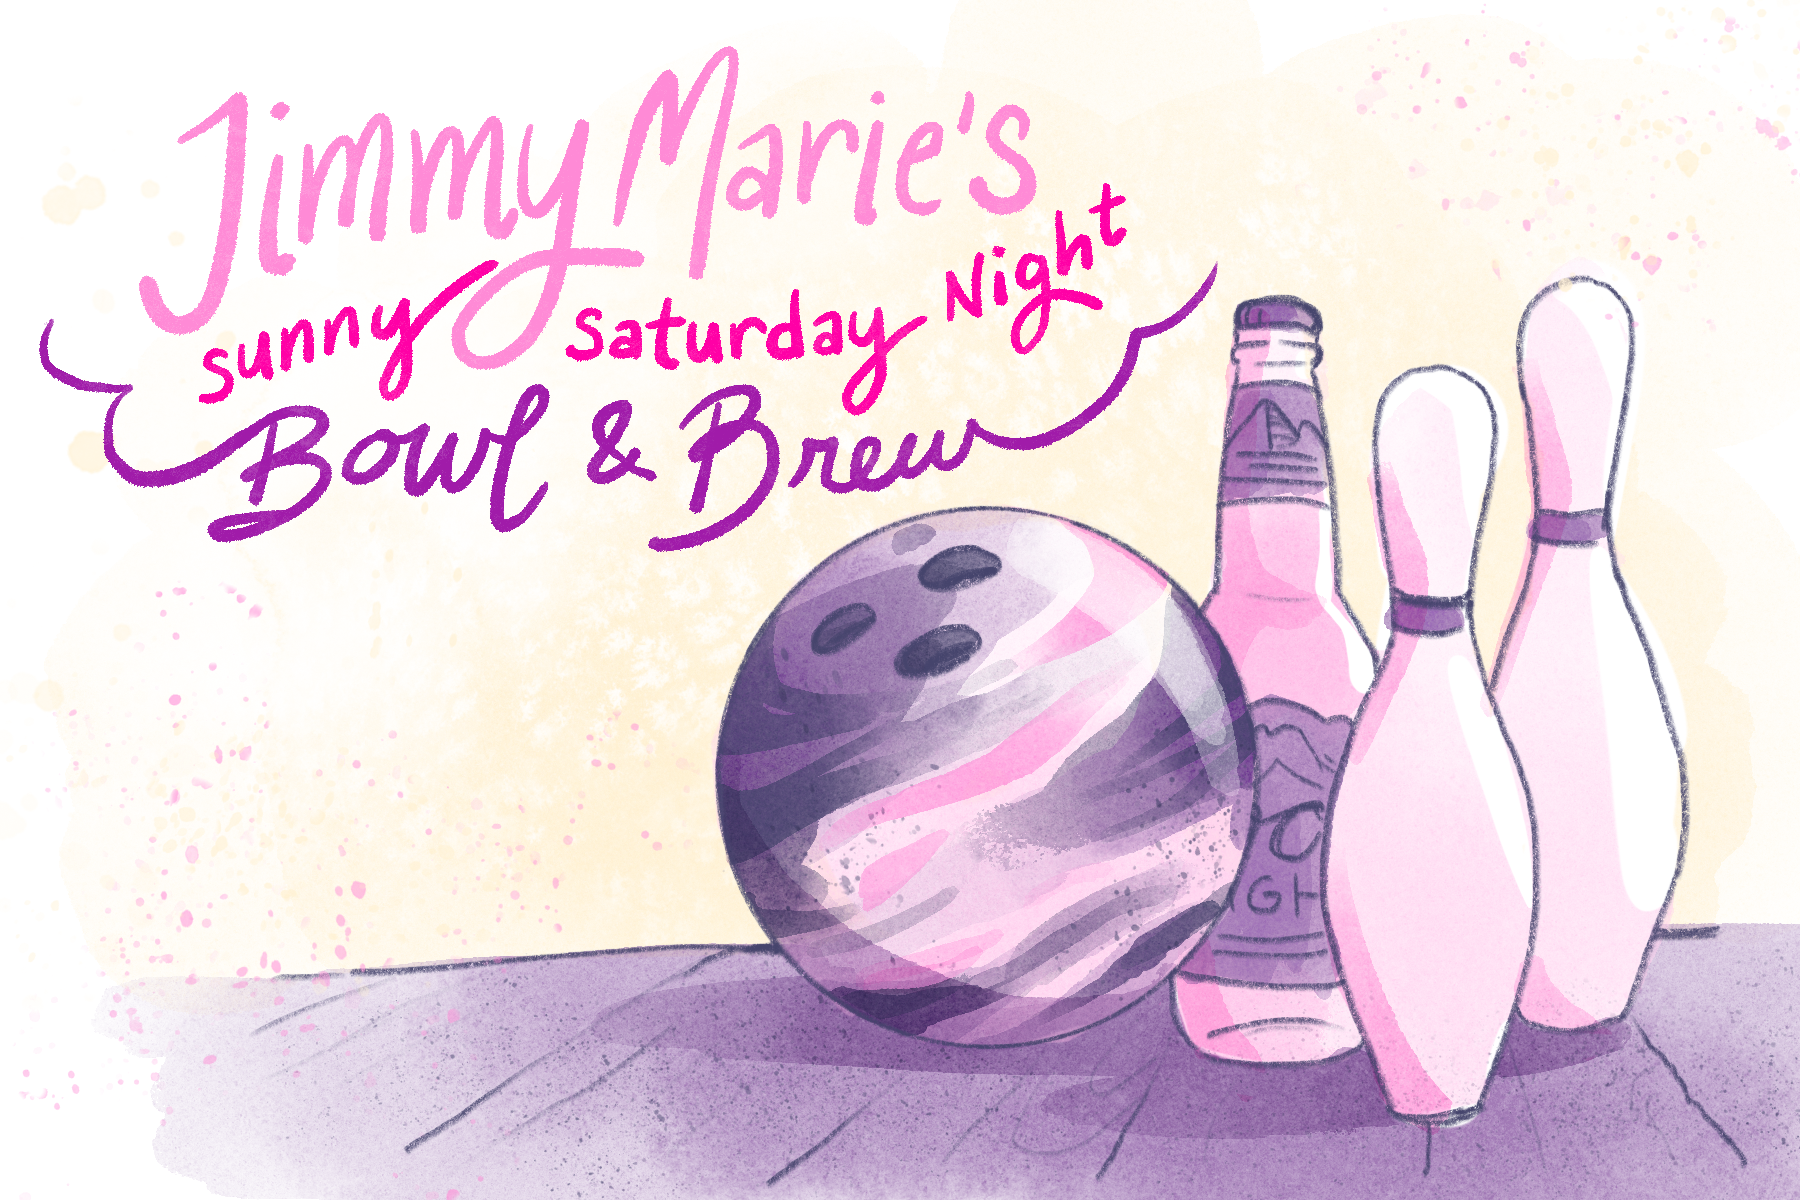 Jimmy Marie's
sunny saturday Night
Bowl & Brew